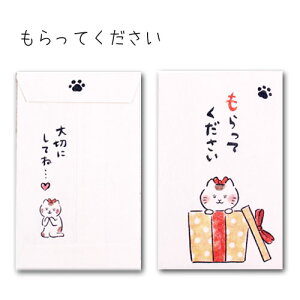 もらってください
大切に
してね…
もらって
ください